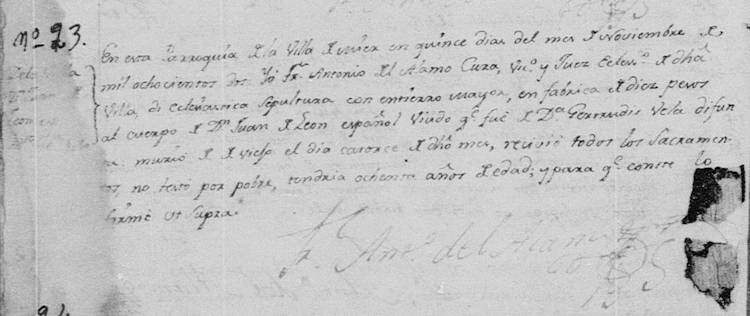 No. 23.
En esta Parroquia de la Villa de Mier en quince dias del mes de Noviembre de
mil ochocientos dos Yo Fr. Antonio del Alamo Cura, Vic.o y Juez Eclesi.o de dha
Villa, di eclesiastica sepultura con entierro mayor, en fabrica de diez pesos
al cuerpo de Dn. Juan de Leon español Viudo q.e fue de Da. Gertrudis Vela difun
ta. murió de viejo el dia catorce de dho mes, recivió todos los Sacramen
tos no testó por pobre, tendria ochenta años de edad; y para q.e conste lo
firmé ut supra.
Fr. Ant.o del Alamo